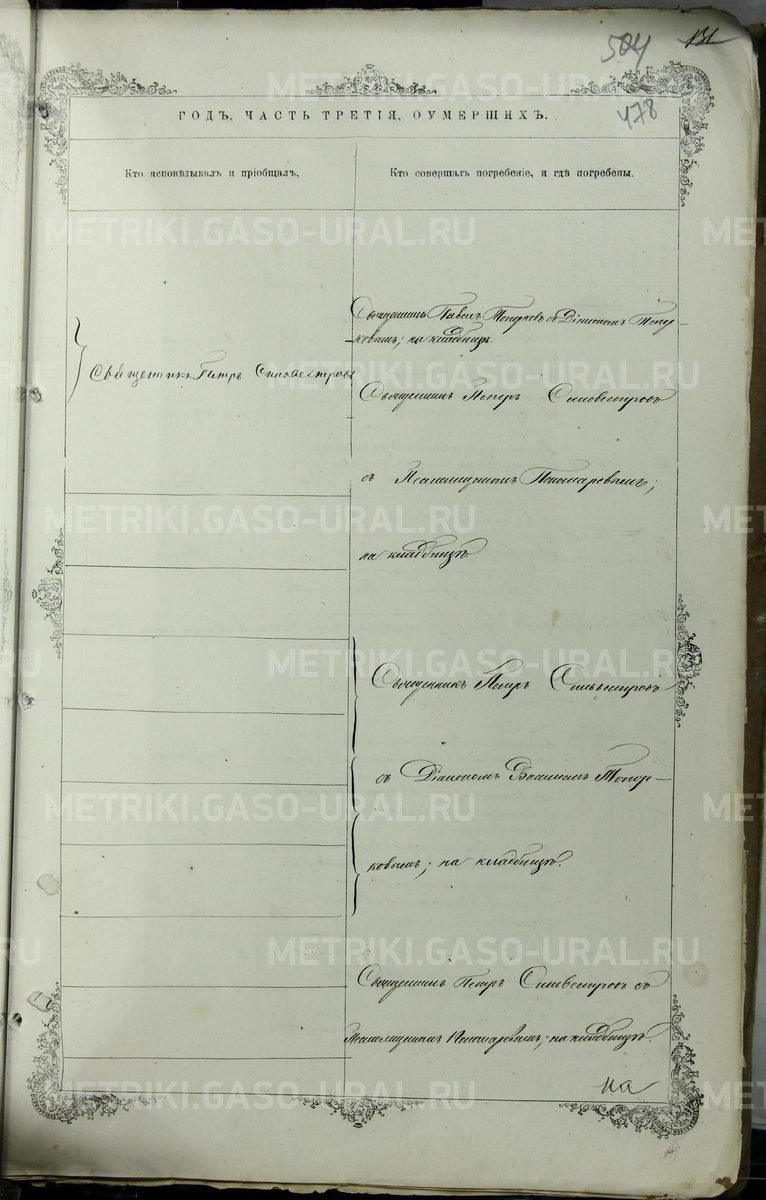 504
131
478
ГОДЪ, ЧАСТЬ ТРЕТІЯ, ОУМЕРШИХЪ.
Кто исповѣдывалъ и пріобщалъ,
Кто совершалъ погребеніе, и гдѣ погребены.
Священникъ Петръ Сильвестровъ
Священникъ Павелъ Топорковъ съ Діакономъ Топор-
ковымъ; на кладбищѣ
Священникъ Петръ Сильвестровъ
съ Псаломщикомъ Пономаревымъ;
на кладбищѣ.
Священникъ Петръ Сильвестровъ
съ Діакономъ Топор-
ковымъ; на кладбищѣ.
Священникъ Петръ Сильвестровъ съ
Псаломщикомъ Пономаревымъ; на кладбищѣ.
METRIKI.GASO-URAL.RU